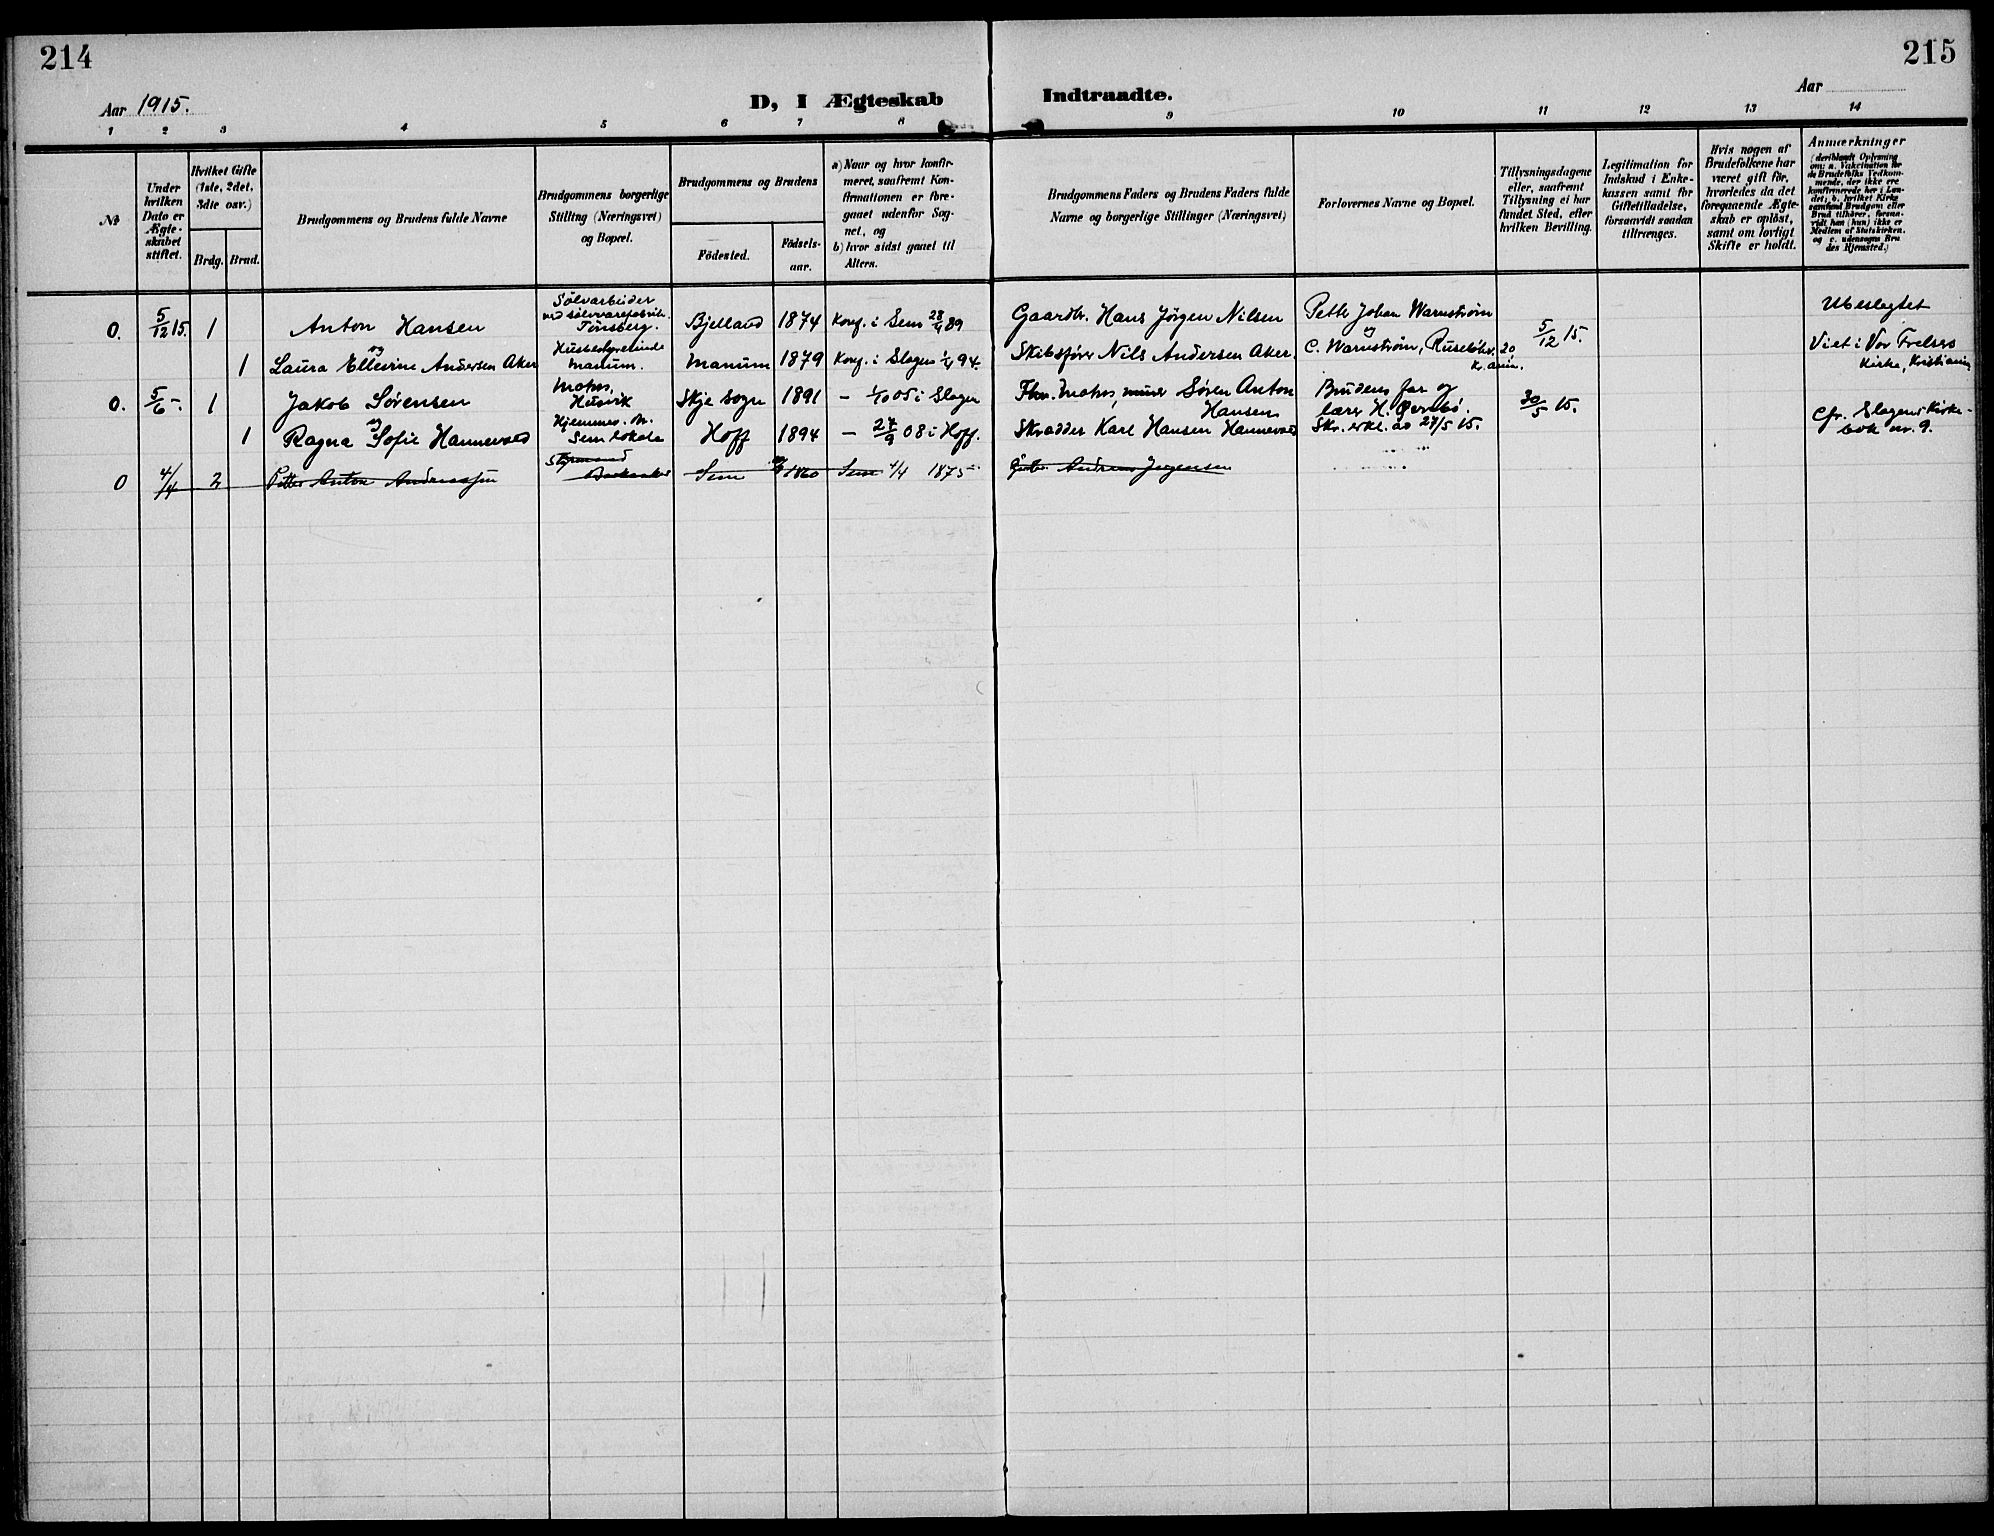 214
215
Aar 1915.
D, I Ægteskab Indtraadte.
Aar
1 2 3 4 5 6 7 8 9 10 11 12 13 14
No
Under hvilken Dato er Ægteskabet stiftet.
Hvilket Gifte (1ste, 2det, 3die osv.)
Brdg. Brud.
Brudgommens og Brudens fulde Navne
Brudgommens borgerlige Stilling (Næringsvei) og Bopæl.
Brudgommens og Brudens
Födested. Födselsaar.
a) Naar og hvor konfirmeret, saafremt Konfirmationen er foregaaet udenfor Sognet, og
b) hvor sidst gaaet til Alters.
Brudgommens Faders og Brudens Faders fulde Navne og borgerlige Stillinger (Næringsvei)
Forlovernes Navne og Bopæl.
Tillysningsdagene eller, saafremt Tillysning ei har fundet Sted, efter hvilken Bevilling.
Legitimation for Indskud i Enkekassen samt for Giftetilladelse, forsaavidt saadan tiltrænges.
Hvis nogen af Brudefolkene har været gift för, hvorledes da det foregaaende Ægteskab er oplöst, samt om lovligt Skifte er holdt.
Anmærkninger (deriblandt Oplysning om: a. Vakcination for de Brudefolks Vedkommende, der ikke ere konfirmerede her i Landet; b. hvilket Kirkesamfund Brudgom eller Brud tilhörer, forsaavidt han (hun) ikke er Medlem af Statskirken, og c. udensogns Brudes Hjemsted.)
0. 5/12 15. 1 Anton Hansen Sølvarbeider ved sølvvarefabrik. Tønsberg. Bjelland 1874 Konf. i Sem 28/4 89 Gaardbr. Hans Jørgen Nilsen Petter Johan Warnstrøm 5/12 15. Ubeslegtet
og
1 Laura Ellevine Andersen Aker Husbestyrerinde Manum. Manum 1879 Konf. i Slagen 1/4 94. Skibsfører Nils Andersen Aker. og C. Warnstrøm, Ruseløkv. 20 Kr.ania. Viet i Vor Frelsers Kirke, Kristiania
0. 5/6 - 1 Jakob Sørensen Matros, Husvik Skje sogn 1891 - 1/10 05 i Slagen Fhv. matros, murer Søren Anton Hansen Brudens far og lærer H. Øverbø. 30/5 15. Cfr. Slagens Kirkebok nr. 9.
og
1 Ragna Sofie Hannevold Hjemmev. Sem lokale Hoff 1894 - 27/9 08 i Hoff. Skrædder Karl Hansen Hannevold Skr. erkl. av 27/5 15.
0 4/4 2 Petter Anton Andreassen Styrmand Sem 1860 Sem 4/4 1875 Gbr. Andreas Jørgensen